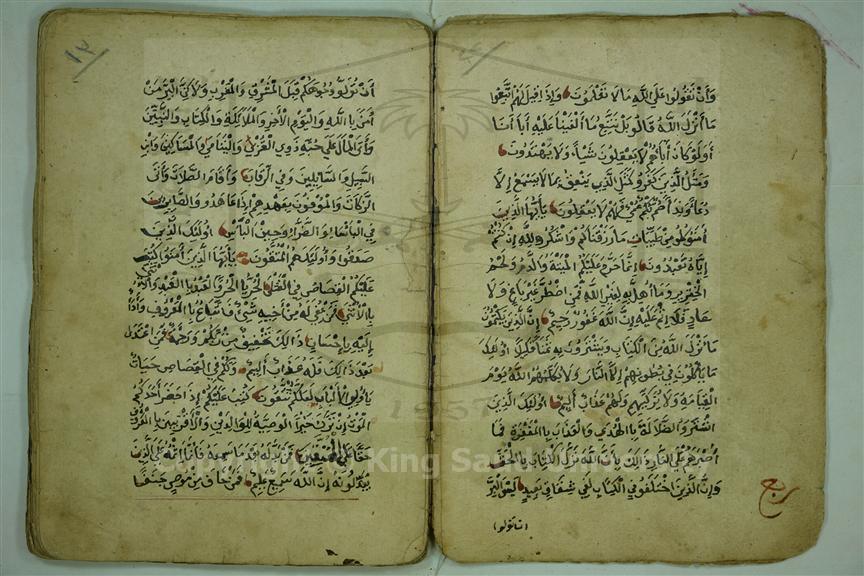 وَأَنْ تَقُولُوا عَلَى اللَّهِ مَا لَا تَعْلَمُونَ وَإِذَا قِيلَ لَهُمْ اتَّبِعُوا
مَا أَنْزَلَ اللَّهُ قَالُو بَلْ نَتَّبِعُ مَا أَلْفَيْنَا عَلَيْهِ أَبَاأَنَا
أَوَلَوْ كَانَ أَبَاؤُهُمْ لَا يَعْقِلُونَ شَيْأً وَلَا يَهْتَدُونَ
وَمَثَلُ الَّذِينَ كَفَرُو كَمَثَلِ الَّذِي يَنْعِقُ بِمَا لَا يَسْمَعُ إِلَّا
دُعَاً وَنِدَاً صُمٌّ بُكْمٌ عُمْيٌ فَهُمْ لَا يَعْقِلُونَ يَأَيُّهَا الَّذِينَ
أَمَنُو كُلُو مِنْ طَيِّبَاتِ مَا رَزَقْنَاكُمْ وَاشْكُرُو لِلَّهِ إِنْ كُنْتُمْ
إِيَّاهُ تَعْبُدُونَ إِنَّمَا حَرَّمَ عَلَيْكُمُ الْمَيْتَةَ وَالدَّمَ وَلَحْمَ
الْخِنْزِيرِ وَمَا أُهِلَّ بِهِ لِغَيْرِ اللَّهِ فَمَنِ اضْطُرَّ غَيْرَ بَاغٍ وَلَا
عَادٍ فَلَا إِثْمَ عَلَيْهِ إِنَّ اللَّهَ غَفُورٌ رَحِيمٌ إِنَّ الَّذِينَ يَكْتُمُونَ
مَا أَنْزَلَ اللَّهُ مِنَ الْكِتَابِ وَيَشْتَرُونَ بِهِ ثَمَنًا قَلِيلًا أُولَئِكَ
مَا يَأْكُلُونَ فِي بُطُونِهِمْ إِلَّا النَّارَ وَلَا يُكَلِّمُهُمُ اللَّهُ يَوْمَ
الْقِيَامَةِ وَلَا يُزَكِّيهِمْ وَلَهُمْ عَذَابٌ أَلِيمٌ أُولَئِكَ الَّذِينَ
اشْتَرَوُ الضَّلَالَةَ بِالْهُدَى وَالْعَذَابَ بِالْمَغْفِرَةِ فَمَا
أَصْبَرَهُمْ عَلَى النَّارِ ذَالِكَ بِأَنَّ اللَّهَ نَزَّلَ الْكِتَابَ بِالْحَقِّ
وَإِنَّ الَّذِينَ اخْتَلَفُو فِي الْكِتَابِ لَفِي شِقَاقٍ بَعِيدٍ لَيْسَ الْبِرَّ
ربع
أن تولو
١٢
أَنْ تُوَلُّو وُجُوهَكُمْ قِبَلَ الْمَشْرِقِ وَالْمَغْرِبِ وَلَاكِنَّ الْبِرَّ مَنْ
أَمَنَ بِاللَّهِ وَالْيَوْمِ الْأَخِرِ وَالْمَلَائِكَةِ وَالْكِتَابِ وَالنَّبِيِّينَ
وَأَتَى الْمَالَ عَلَى حُبِّهِ ذَوِي الْقُرْبَى وَالْيَتَامَى وَالْمَسَاكِينَ وَابْنَ
السَّبِيلِ وَالسَّائِلِينَ وَفِي الرِّقَابِ وَأَقَامَ الصَّلَاةَ وَأَتَى
الزَّكَاتَ وَالْمُوفُونَ بِعَهْدِهِمْ إِذَا عَاهَدُو وَالصَّابِرِينَ
فِي الْبَأْسَاءِ وَالضَّرَّاءِ وَحِينَ الْبَأْسِ أُولَئِكَ الَّذِينَ
صَدَقُوا وَأُولَئِكَ هُمُ الْمُتَّقُونَ يَأَيُّهَا الَّذِينَ أَمَنُو كُتِبَ
عَلَيْكُمُ الْقِصَاصُ فِي الْقَتْلَى الْحُرُّ بِالْحُرِّ وَالْعَبْدُ بِالْعَبْدِ وَالْأُنْثَى
بِالْأُنْثَى فَمَنْ عُفِيَ لَهُ مِنْ أَخِيهِ شَيْءٌ فَاتِّبَاعٌ بِالْمَعْرُوفِ وَأَدَاءٌ
إِلَيْهِ بِإِحْسَانٍ ذَالِكَ تَخْفِيفٌ مِنْ رَبِّكُمْ وَرَحْمَةٌ فَمَنِ اعْتَدَى
بَعْدَ ذَالِكَ فَلَهُ عَذَابٌ أَلِيمٌ وَلَكُمْ فِي الْقِصَاصِ حَيَاتٌ
يَا أُولِي الْأَلْبَابِ لَعَلَّكُمْ تَتَّقُونَ كُتِبَ عَلَيْكُمْ إِذَا حَضَرَ أَحَدَكُمُ
الْمَوْتُ إِنْ تَرَكَ خَيْرًا الْوَصِيَّةُ لِلْوَالِدَيْنِ وَالْأَقْرَبِينَ بِالْمَعْرُوفِ
حَقًّا عَلَى الْمُتَّقِينَ فَمَنْ بَدَّلَهُ بَعْدَ مَا سَمِعَهُ فَإِنَّمَا إِثْمُهُ عَلَى الَّذِينَ
يُبَدِّلُونَهُ إِنَّ اللَّهَ سَمِيعٌ عَلِيمٌ فَمَنْ خَافَ مِنْ مُوصٍ جَنَفًا
1957
Copyright © King Saud University